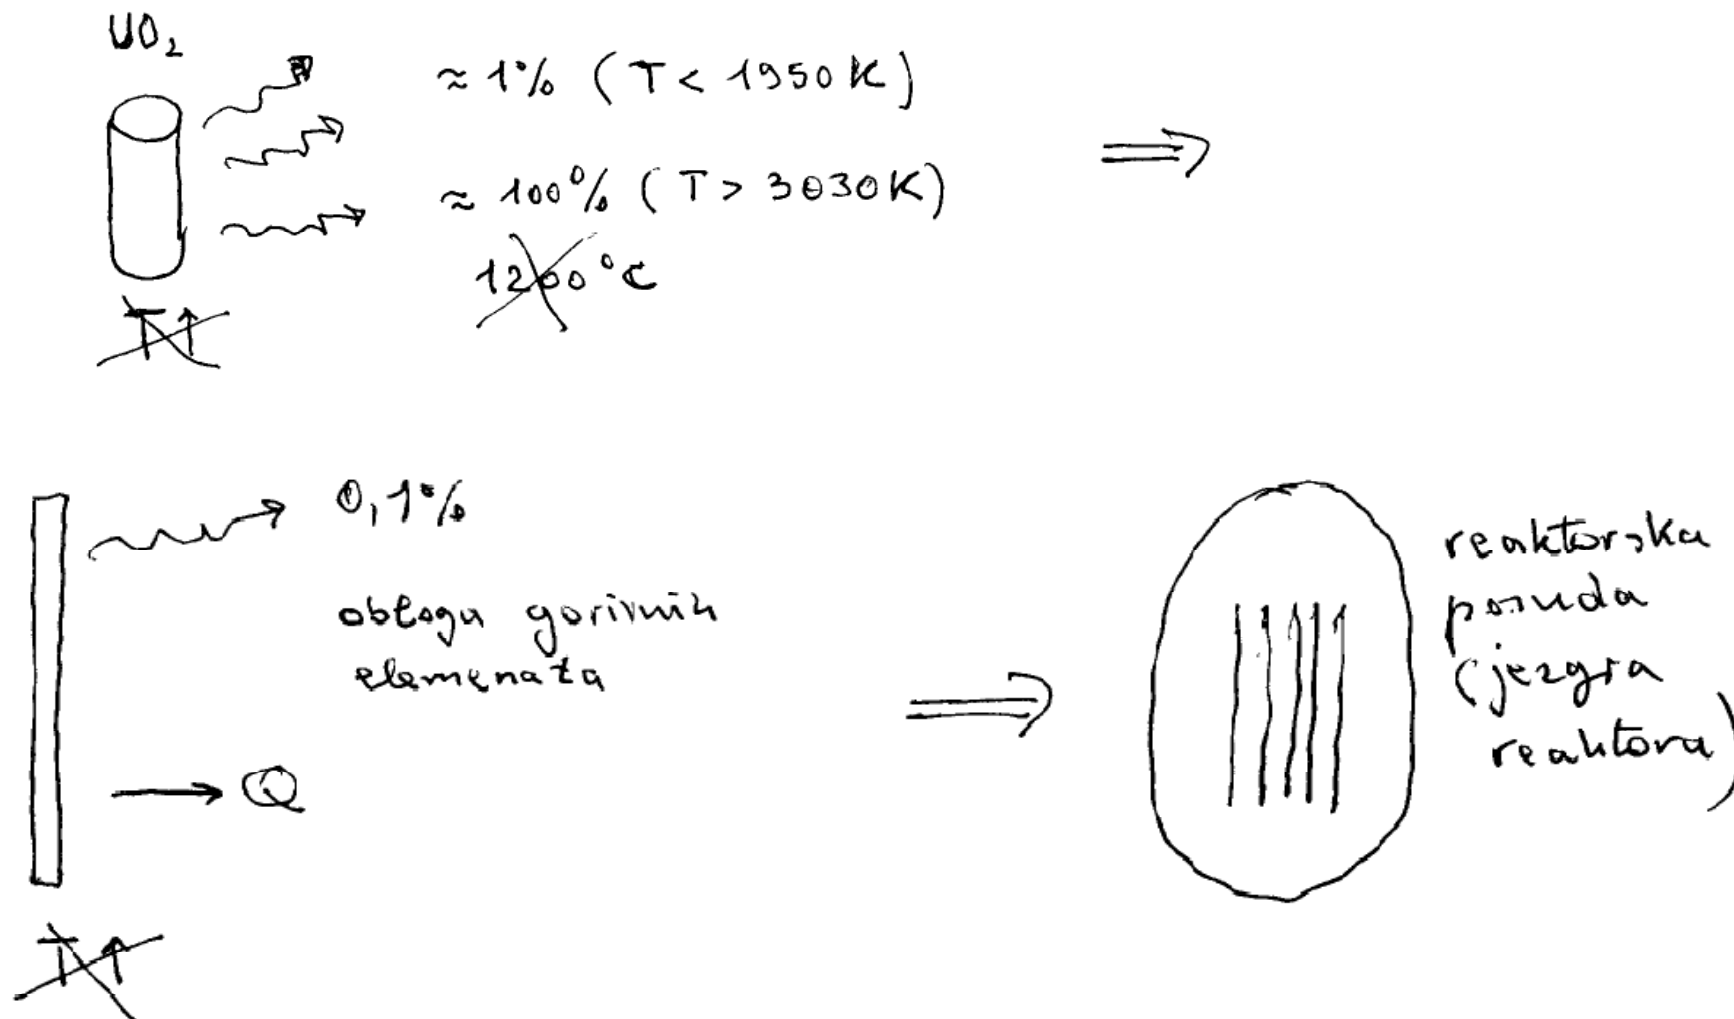 UO₂
≈ 1% (T < 1950 K)
≈ 100% (T > 3030 K)
1200 °C
T↑
0,1%
obloga gorivnih
elemenata
Q
T↑
reaktorska
posuda
(jezgra
reaktora)